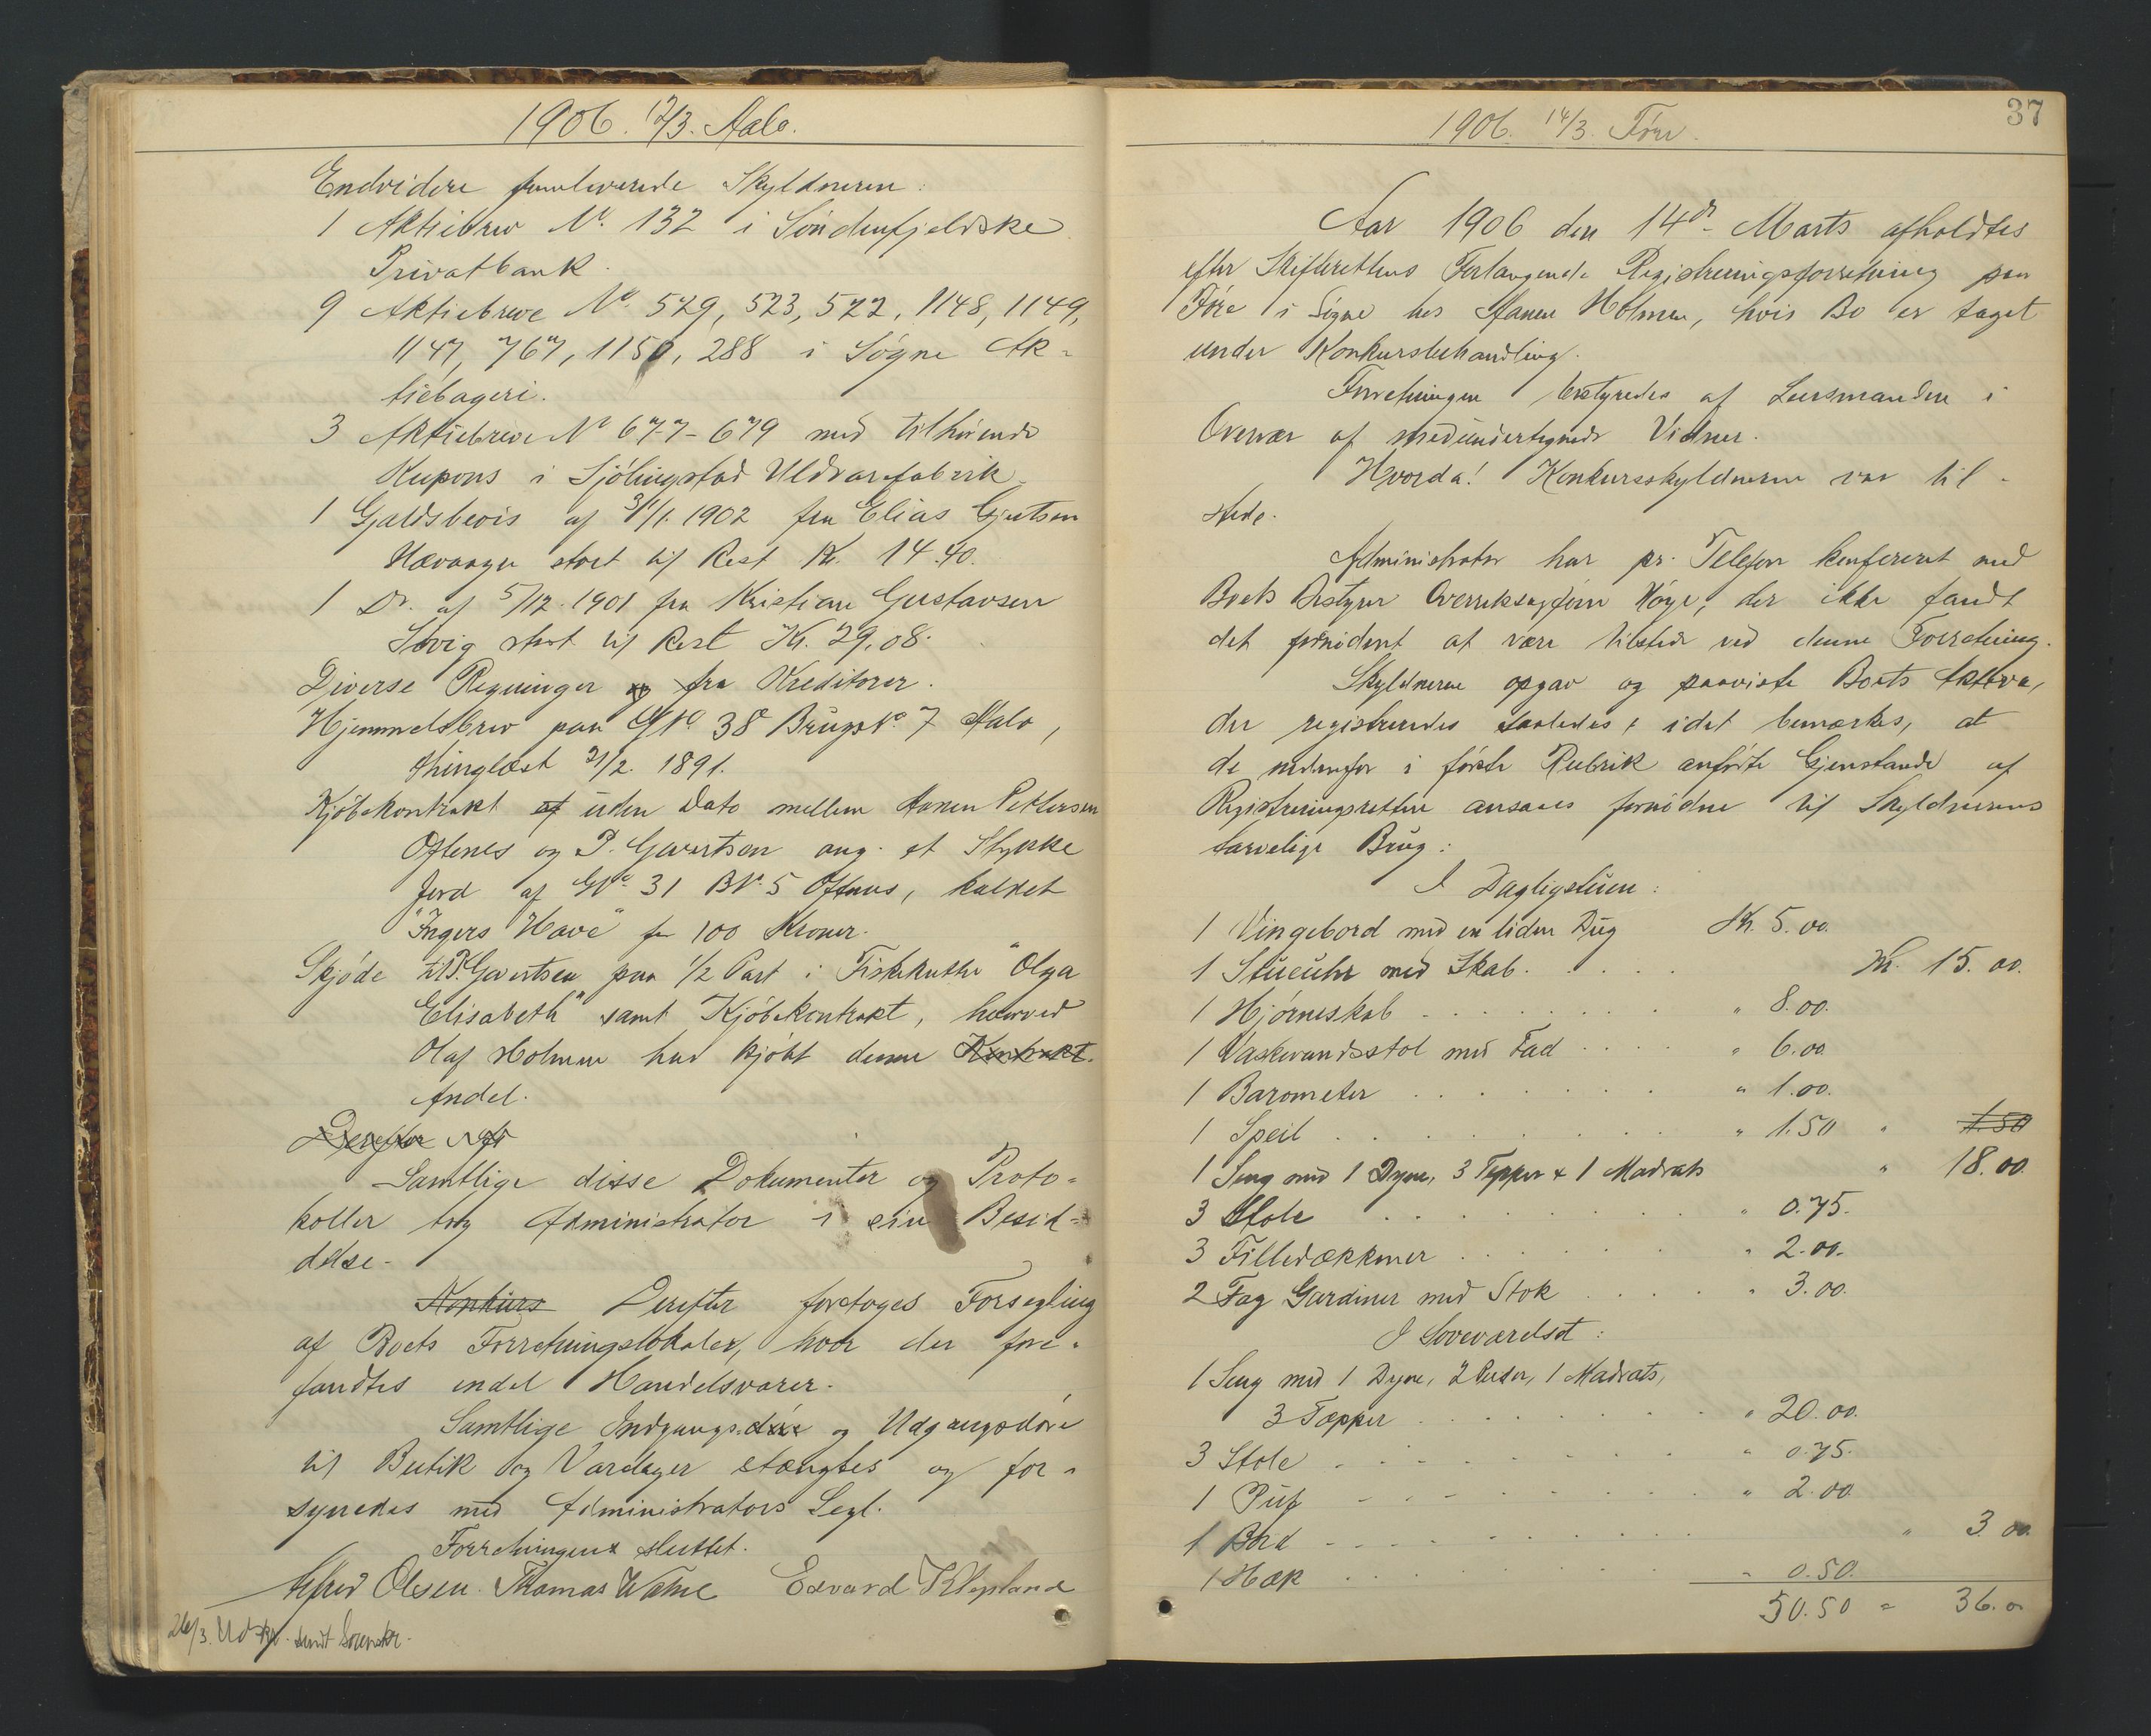 1906. 12/3. Aalo.
Endvidere fremleverede Skyldneren:
1 Aktiebrev No. 132 i Söndenfjeldske
Privatbank.
9 Aktiebreve No. 529, 523, 522, 1148, 1149,
1147, 767, 1150, 288 i Søgne Ak-
tiebageri.
3 Aktiebreve No 677-679 med tilhørende
Kupons i Sjølingstad Uldvarefabrik
1 Gjældsbevis af 3/1. 1902 fra Elias
stort til Rest Kr. 14.40.
1 Do. af 5/12. 1901 fra Kristian Gustavsen
stort til Rest Kr. 29.08.
Diverse Regninger og fra Kreditorer.
Hjemmelsbrev paa GNo. 38 Brugsno. 7 Aalo,
thinglæst 21/2. 1891.
Kjøbekontrakt af uden Dato mellem Aanen Pettersen
Oftenes og P. Gevertsen ang. et Stykke
Jord af GNo. 31 BNo. 5 Oftenes, kaldet
"Ingers Have" for 100 Kroner.
Skjøde til P. Gevertsen paa 1/2 Part i Fiskekutter "Olga
Elisabeth" samt Kjøbekontrakt, hvorved
Olaf Holmen har kjøbt denne Kontrakt.
Andel.
Derefter
Samtlige disse Dokumenter og Proto-
koller tog Administrator i sin Besid-
delse.
Konkurs Derefter foretoges Forsegling
af Boets Forretningslokaler, hvor der fore-
fandtes endel Handelsvarer.
Samtlige Indgangs. døre og Udgangsdøre
til Butik og Varelager stængtes og for-
synedes med Administrators Segl.
Forretningen sluttet.
Alfred Olsen. Thomas Watne Edvard Klepland
26/3. Udskr. sendt Sorenskr.
37
1906. 14/3. Töre.
Aar 1906 den 14de Marts afholdtes
efter Skifterettens Forlangende Registreringsforretning paa
Töre i Søgne hos Aanen Holmen, hvis Bo er taget
under Konkursbehandling.
Forretningen bestyredes af Lensmanden i
Overvær af medundertegnede Vidner.
Hvorda! Konkursskyldneren var til-
stede.
Administrator har pr. Telefon konfereret med
Boets Bestyrer Overretssagfører Høye, der ikke fandt
det fornødent at være tilstede ved denne Forretning.
Skyldneren opgav og paaviste Boets Aktiva,
der registreredes saaledes, idet bemærkes, at
de nedenfor i første Rubrik anførte Gjenstande af
Registreringsretten ansaaes fornødne til Skyldnerens
tarvelige Brug:
I Dagligstuen:
1 Vingebord med en liden Dug Kr. 5.00.
1 Stueuhr med Skab. Kr. 15.00.
1 Hjørneskab " 8.00.
1 Vaskevandsstol med Fad " 6.00
1 Barometer " 1.00.
1 Speil " 1.50 " 1.50
1 Seng med 1 Dyne, 3 Tepper & 1 Madrats " 18.00
3 Stole " 0.75.
3 Filledækkener " 2.00.
2 Fag Gardiner med Stok " 3.00.
I Soveværelset:
1 Seng med 1 Dyne, 2 Puder, 1 Madrats,
3 Tæpper " 20.00.
3 Stole " 0.75.
1 Puf " 2.00
1 Bord " 3.00
1 Hæk " 0.50.
50.50 = 36.00